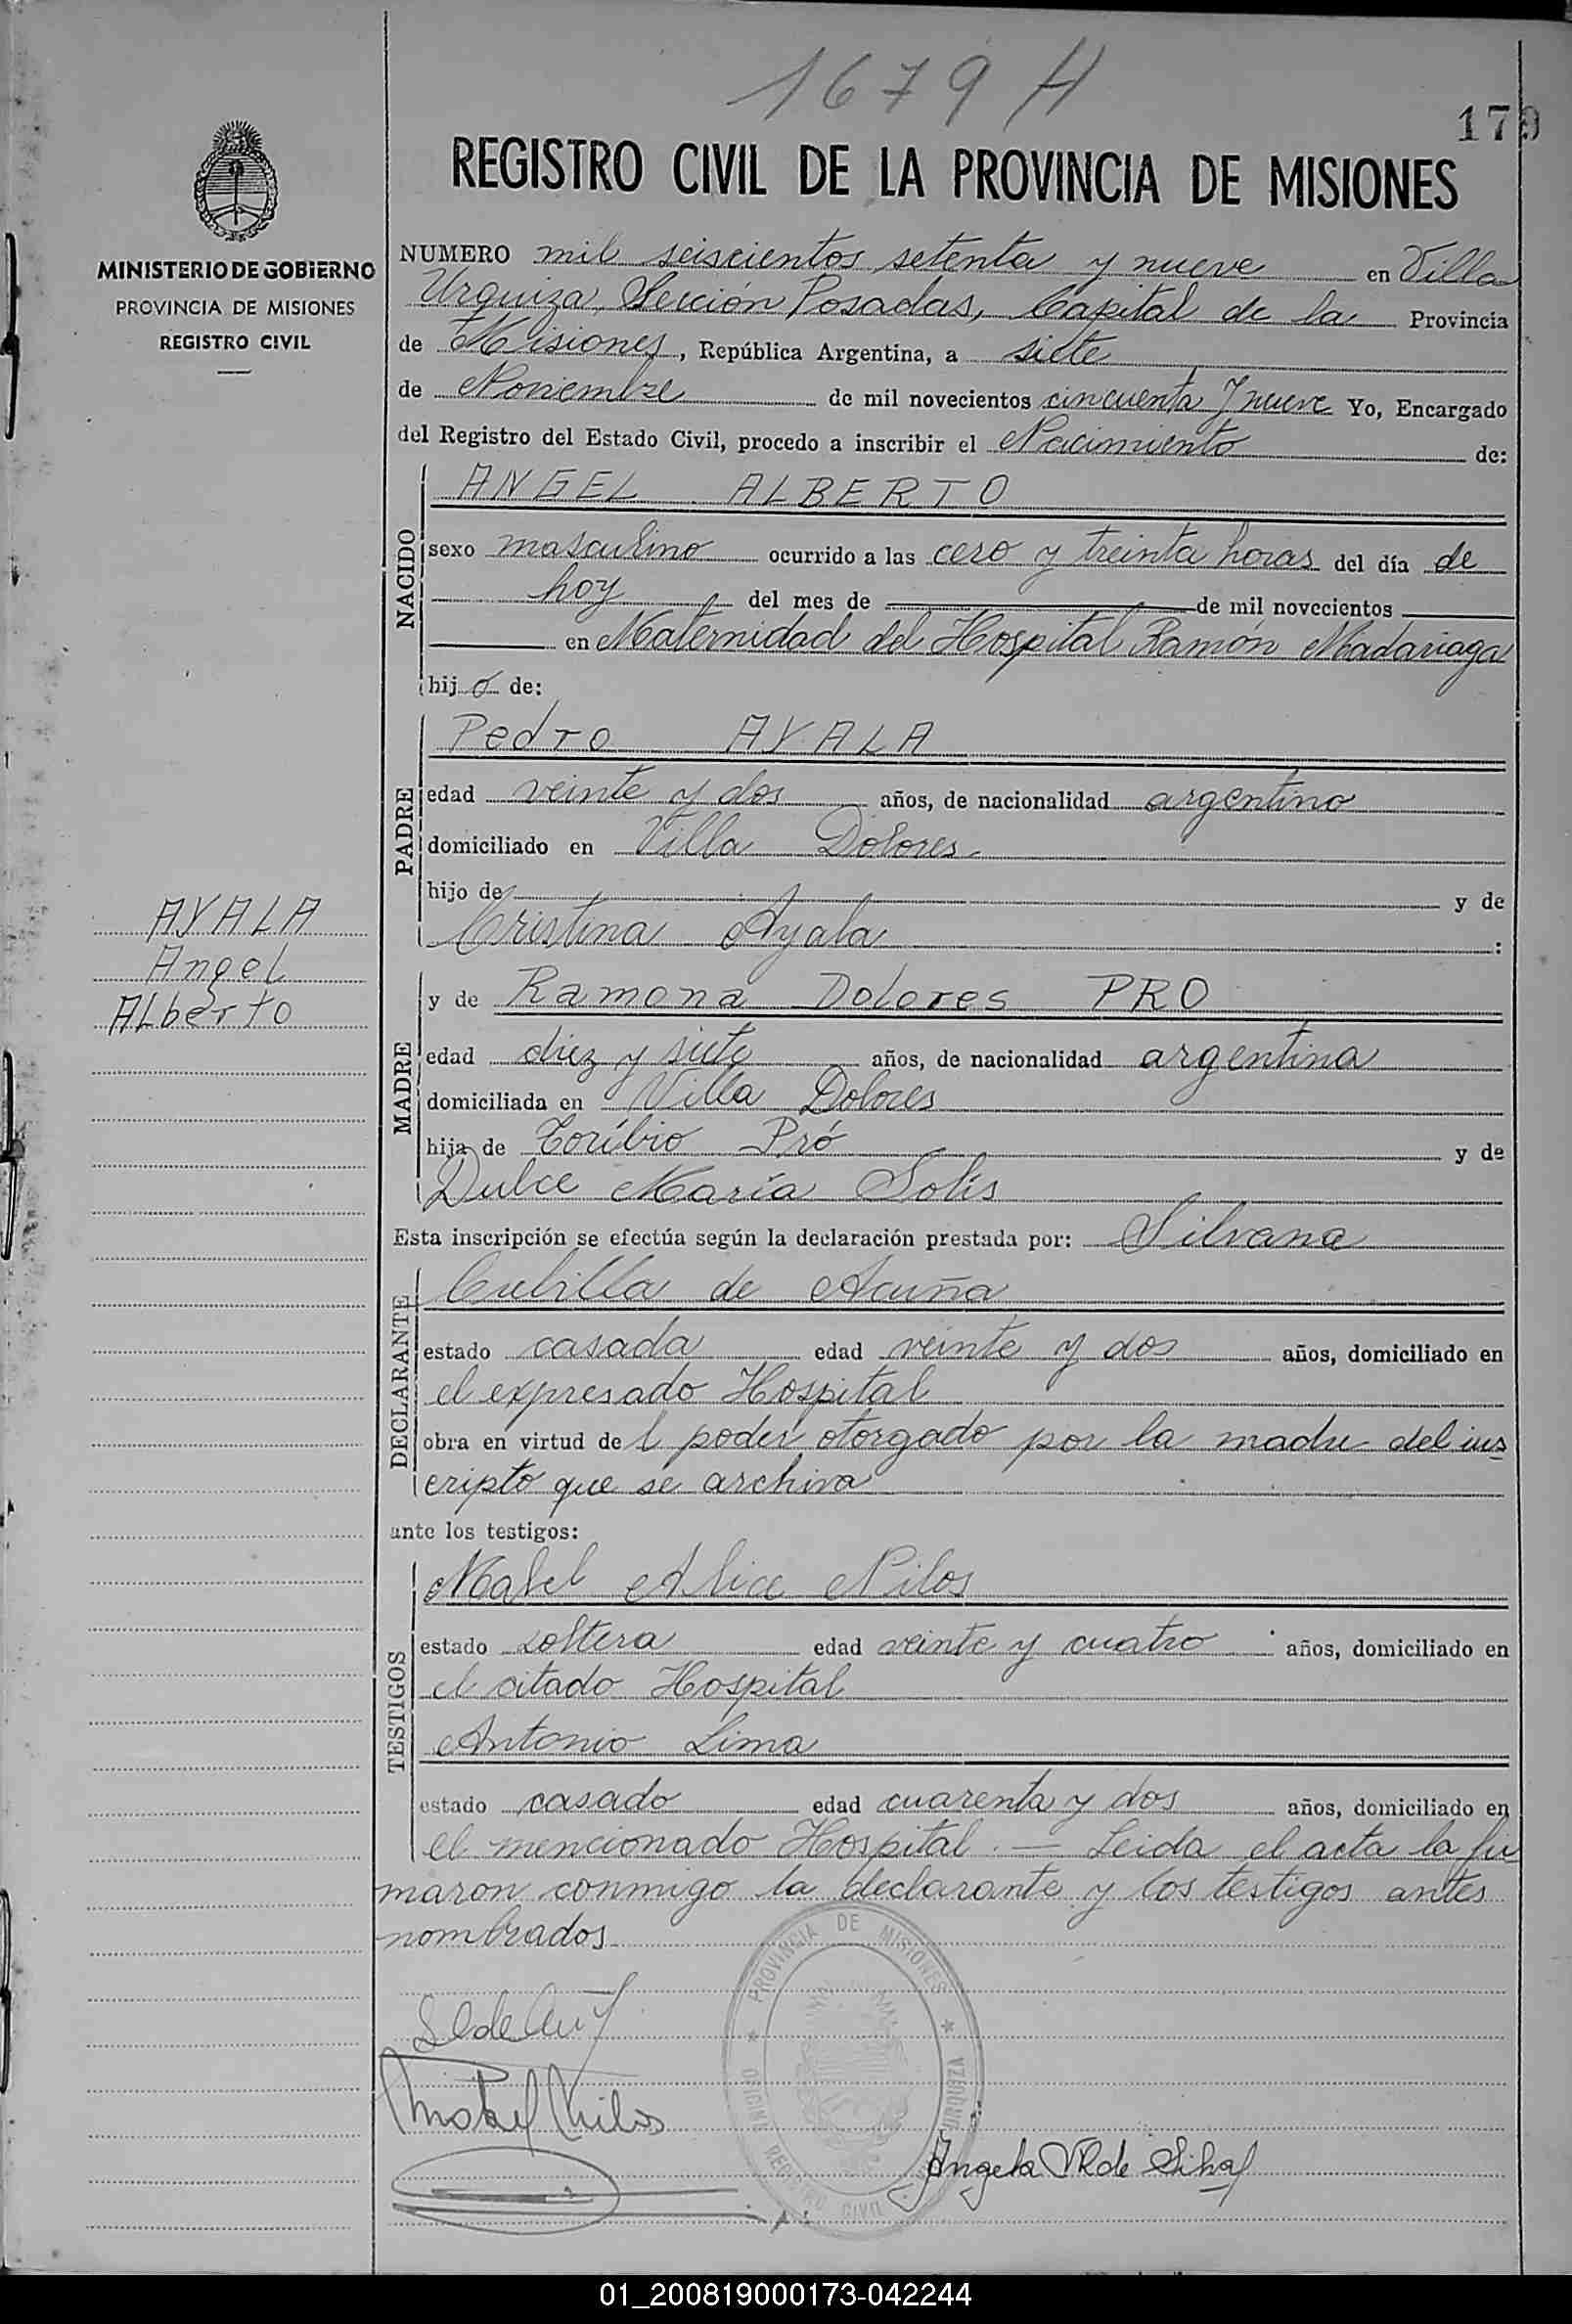 1679 H
179
REGISTRO CIVIL DE LA PROVINCIA DE MISIONES
MINISTERIO DE GOBIERNO
PROVINCIA DE MISIONES
REGISTRO CIVIL
NUMERO mil seiscientos setenta y nueve en Villa
Urquiza, Sección Posadas, Capital de la Provincia
de Misiones, República Argentina, a siete
de Noviembre de mil novecientos cincuenta y nueve Yo, Encargado
del Registro del Estado Civil, procedo a inscribir el Nacimiento de:
NACIDO
ANGEL ALBERTO
sexo masculino ocurrido a las cero y treinta horas del día de
hoy del mes de de mil novecientos
en Maternidad del Hospital Ramón Madariaga
hijo de:
PADRE
Pedro AYALA
edad veinte y dos años, de nacionalidad argentino
domiciliado en Villa Dolores
hijo de y de
Cristina Ayala :
AYALA
Angel
ALberto
MADRE
y de Ramona Dolores PRO
edad diez y siete años, de nacionalidad argentina
domiciliada en Villa Dolores
hija de Toribio Pró y de
Dulce María Solís
Esta inscripción se efectúa según la declaración prestada por: Silvana
DECLARANTE
Cubilla de Acuña
estado casada edad veinte y dos años, domiciliado en
el expresado Hospital
obra en virtud del poder otorgado por la madre del ins
cripto que se archiva
ante los testigos:
TESTIGOS
Mabel Alice Nilos
estado soltera edad veinte y cuatro años, domiciliado en
el citado Hospital
Antonio Lima
estado casado edad cuarenta y dos años, domiciliado en
el mencionado Hospital. — Leida el acta la fir
maron conmigo la declarante y los testigos antes
nombrados
PROVINCIA DE MISIONES
OFICINA REGISTRO CIVIL URQUIZA
Mabel Nilos
Angela de Silva
01_200819000173-042244